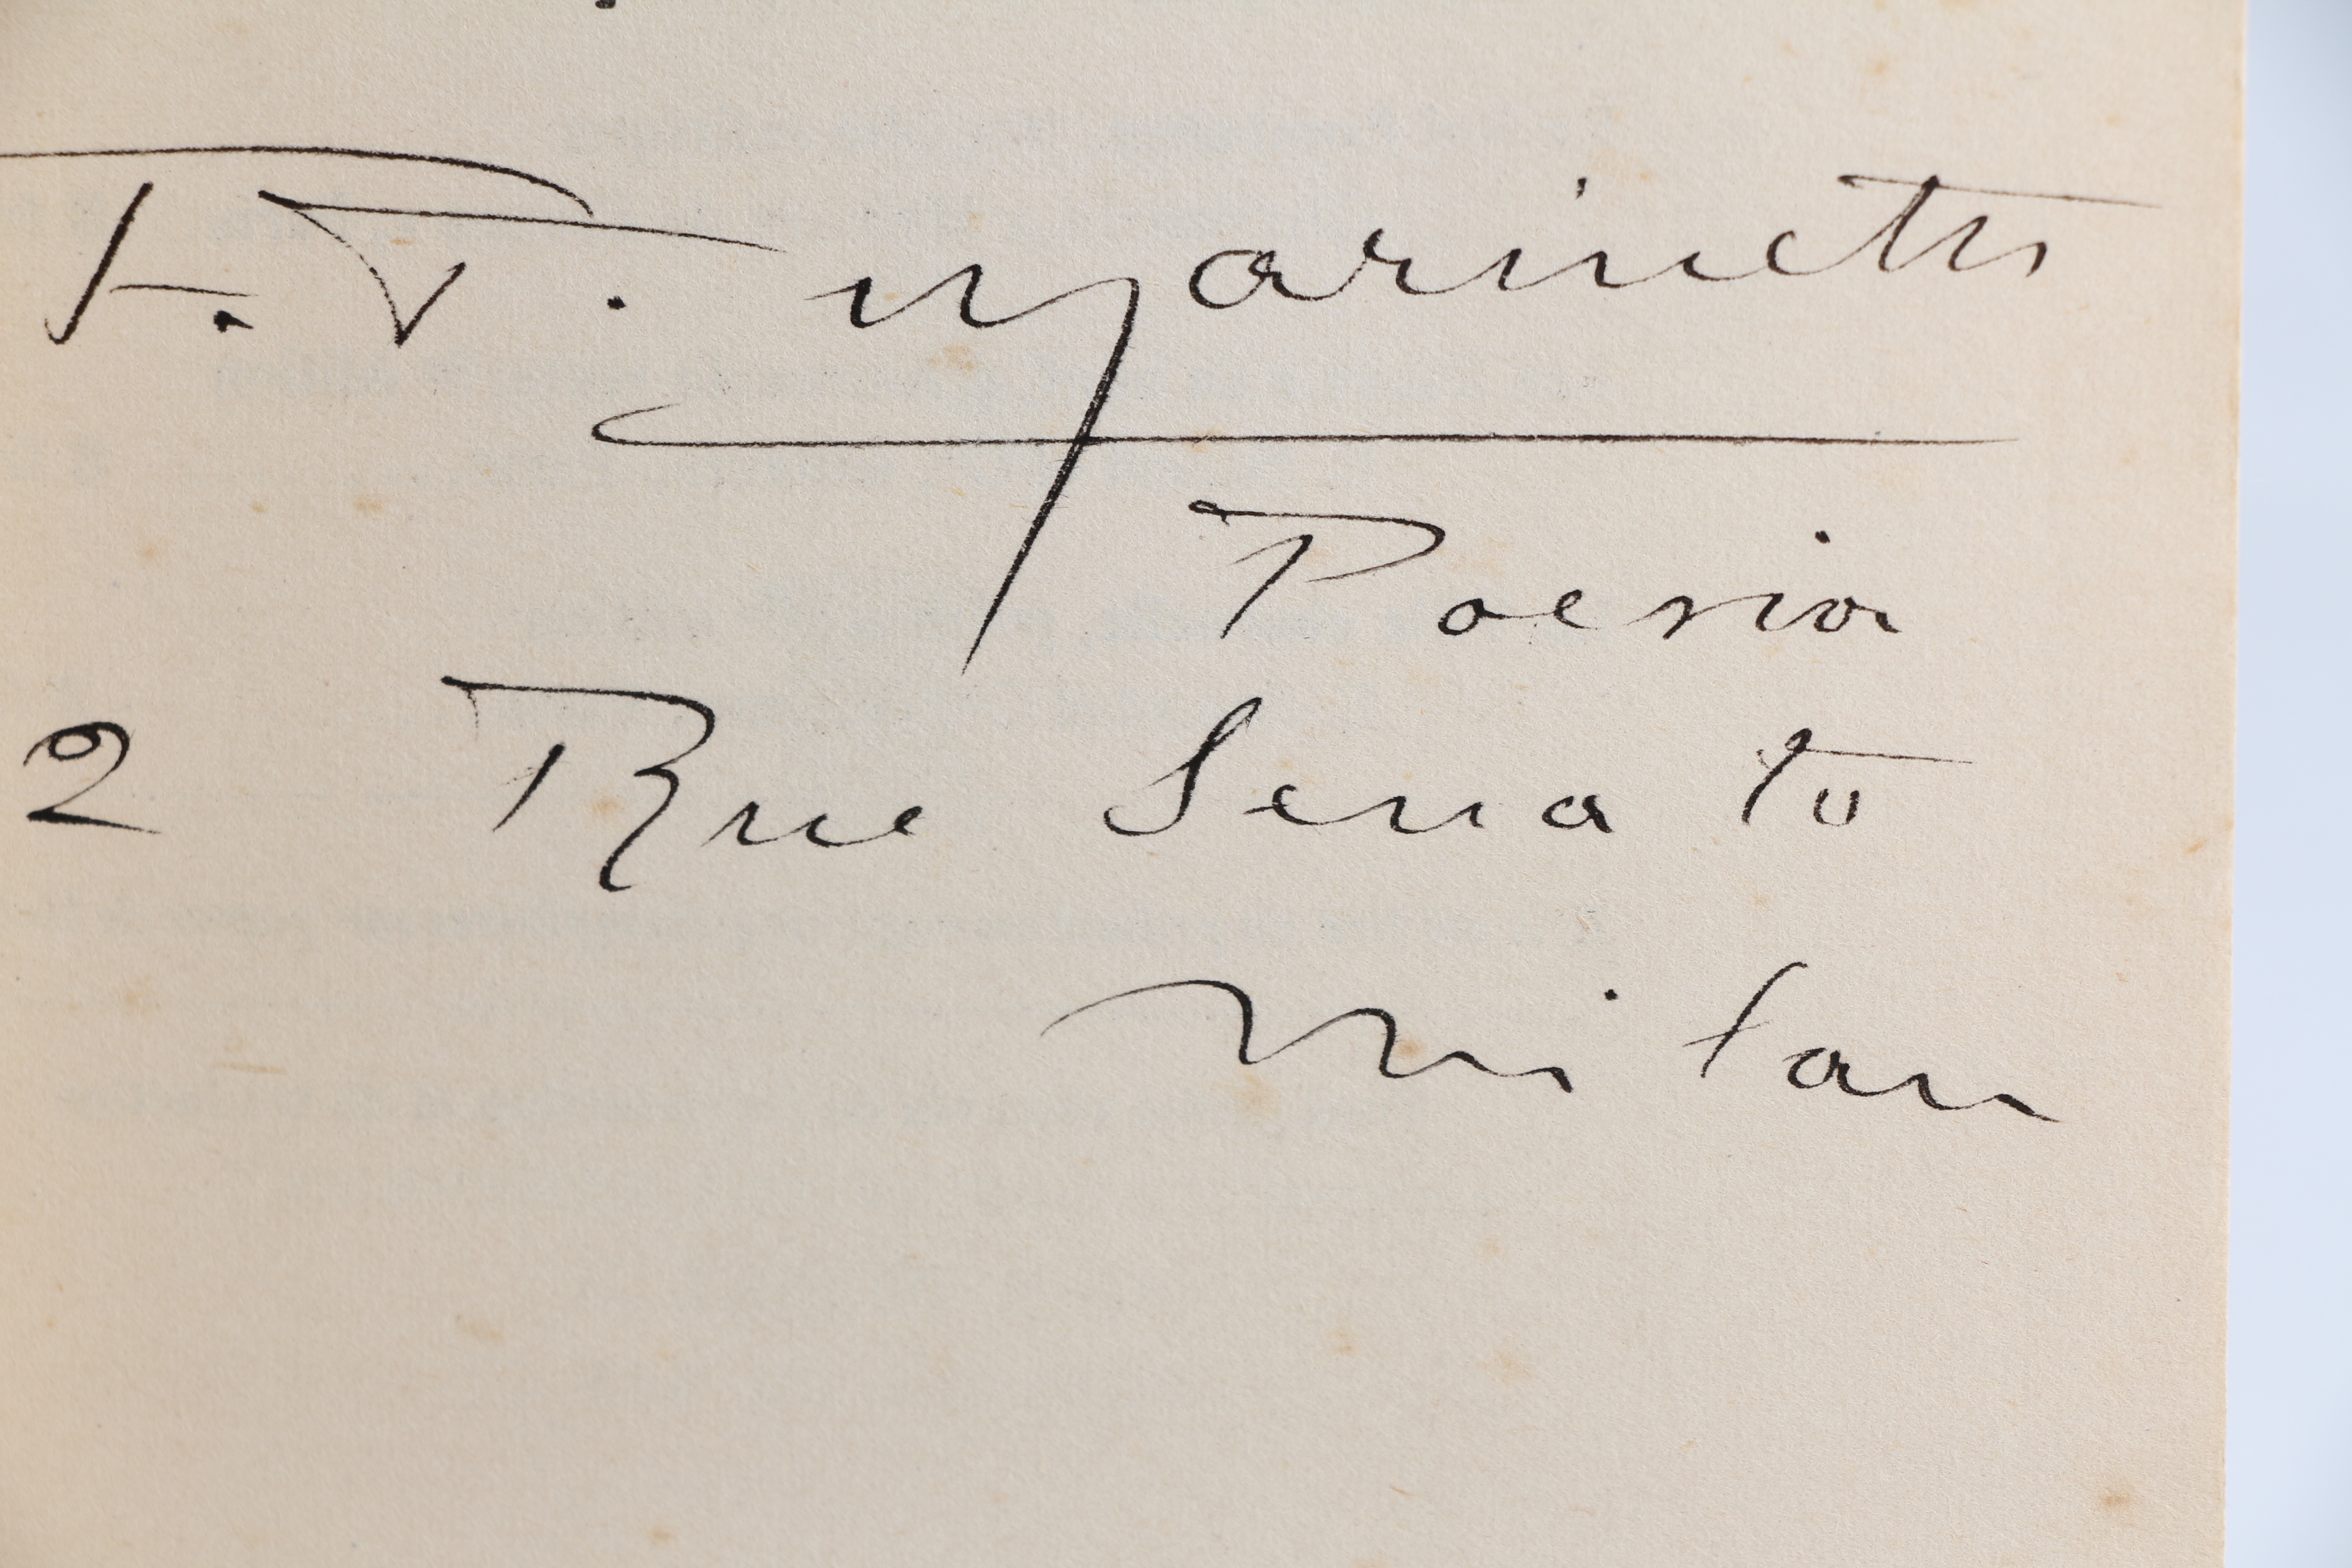 F. T. Marinetti
Poesia
2 Rue Senato
Milan